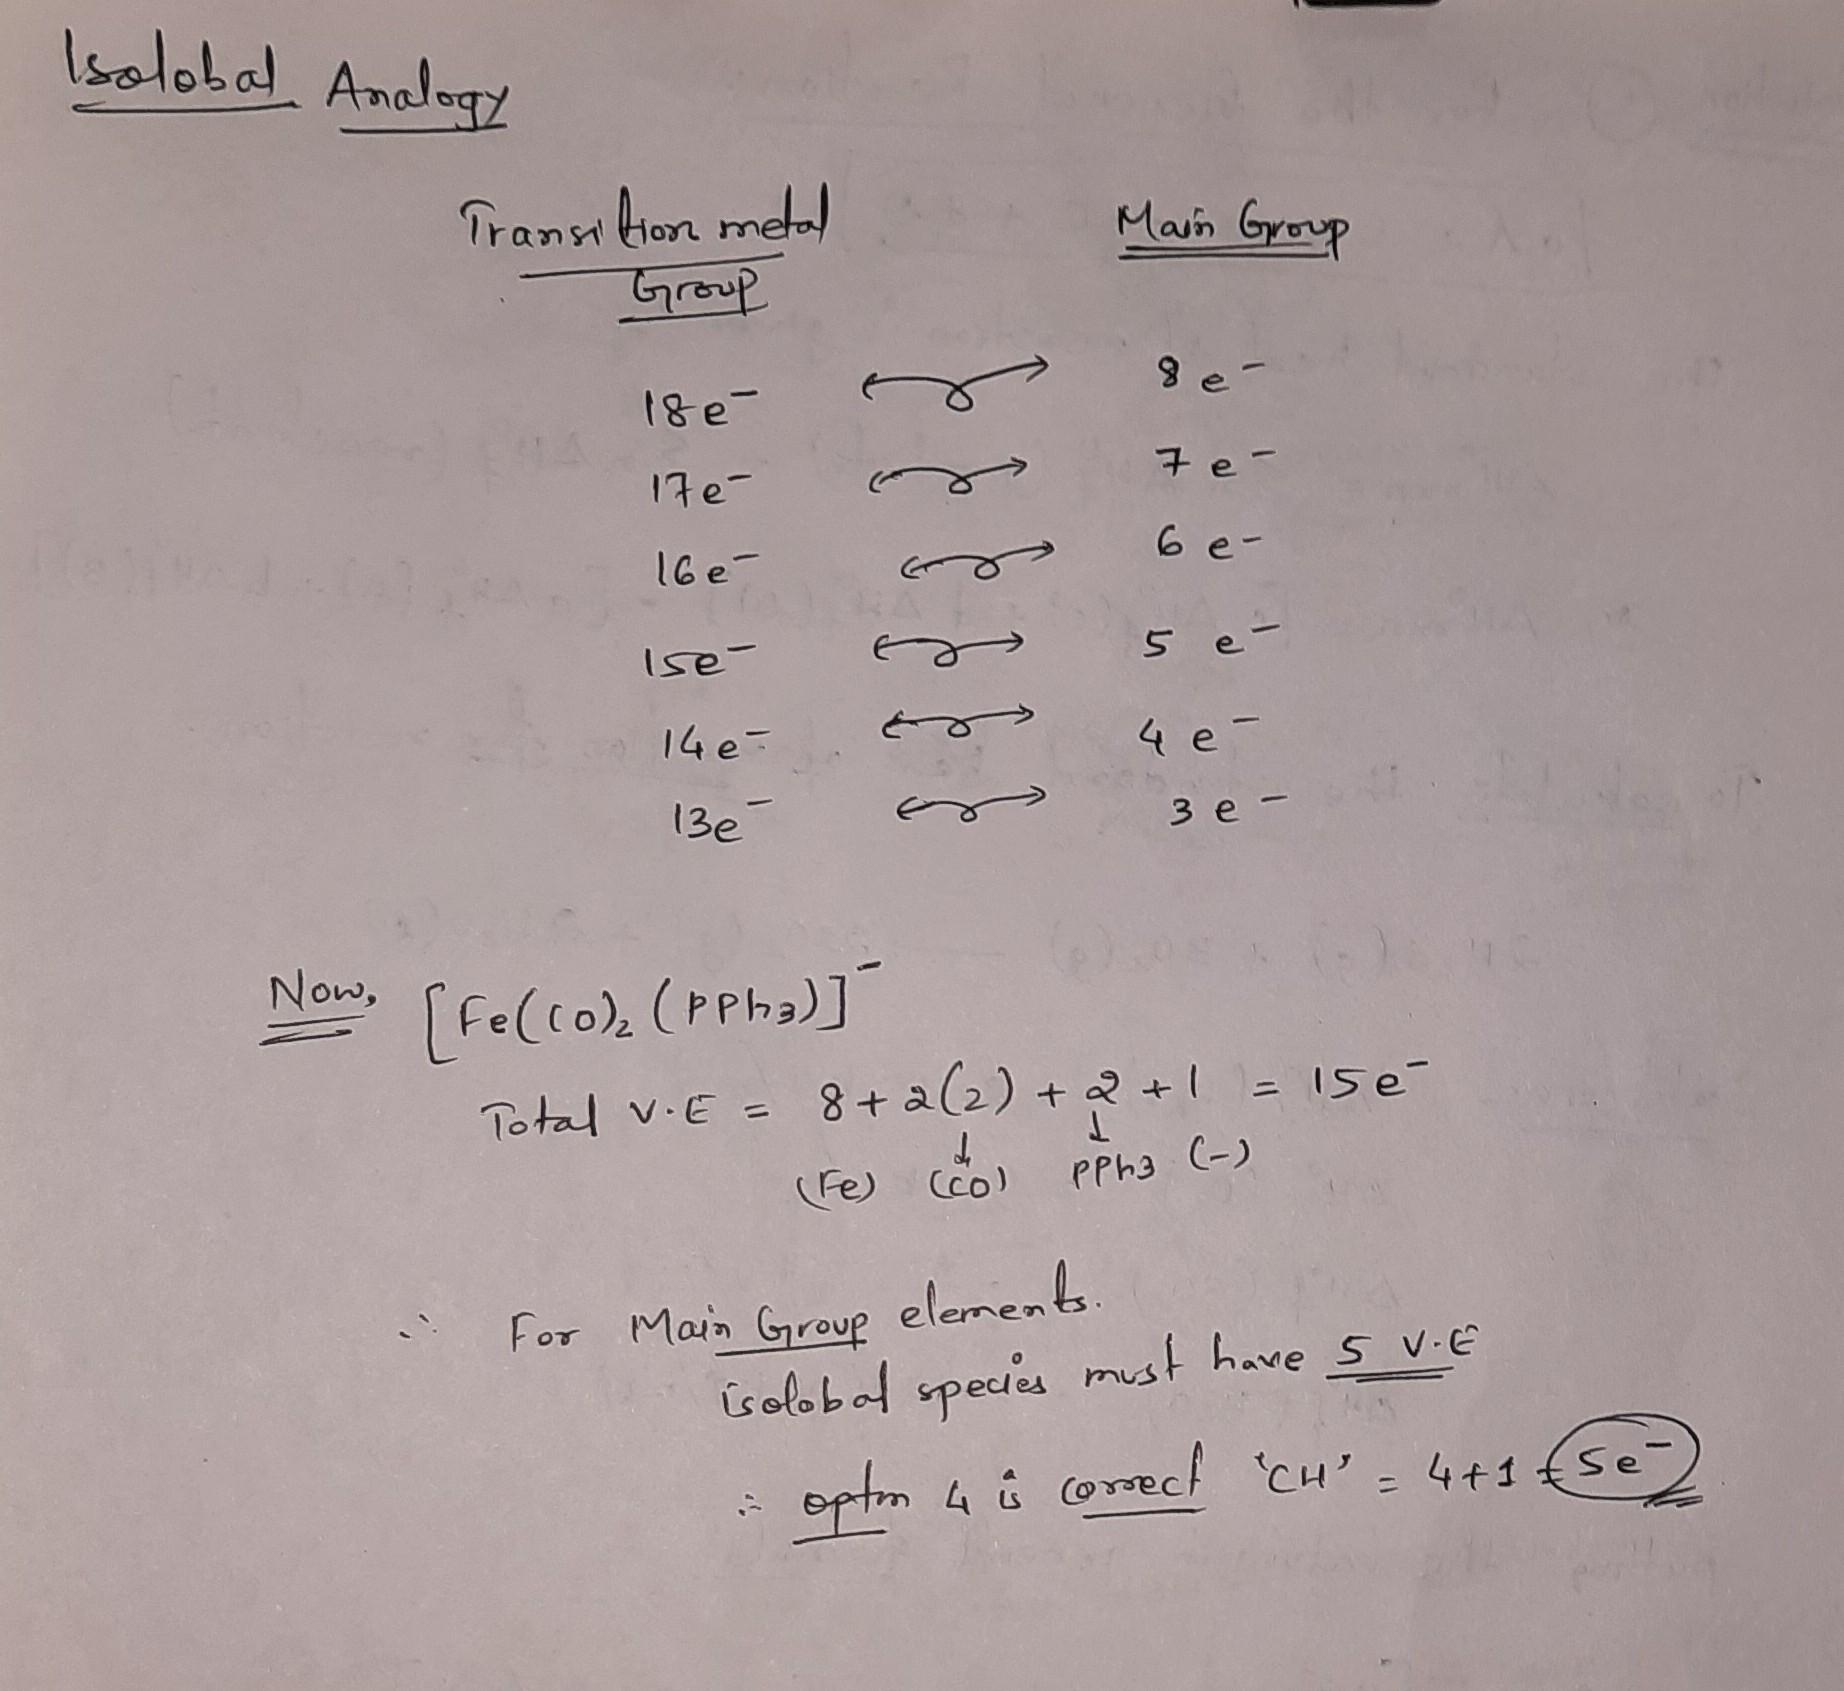 Isolobal Analogy
Transition metal Main Group
Group
18e⁻ ⟷ 8e⁻
17e⁻ ⟷ 7e⁻
16e⁻ ⟷ 6e⁻
15e⁻ ⟷ 5e⁻
14e⁻ ⟷ 4e⁻
13e⁻ ⟷ 3e⁻
Now, [Fe(CO)₂(PPh₃)]⁻
Total V.E = 8+2(2)+2+1 = 15e⁻
(Fe) (CO) PPh3 (-)
∴ For Main Group elements.
isolobal species must have 5 V.E
∴ optn 4 is correct 'CH' = 4+1 = 5e⁻